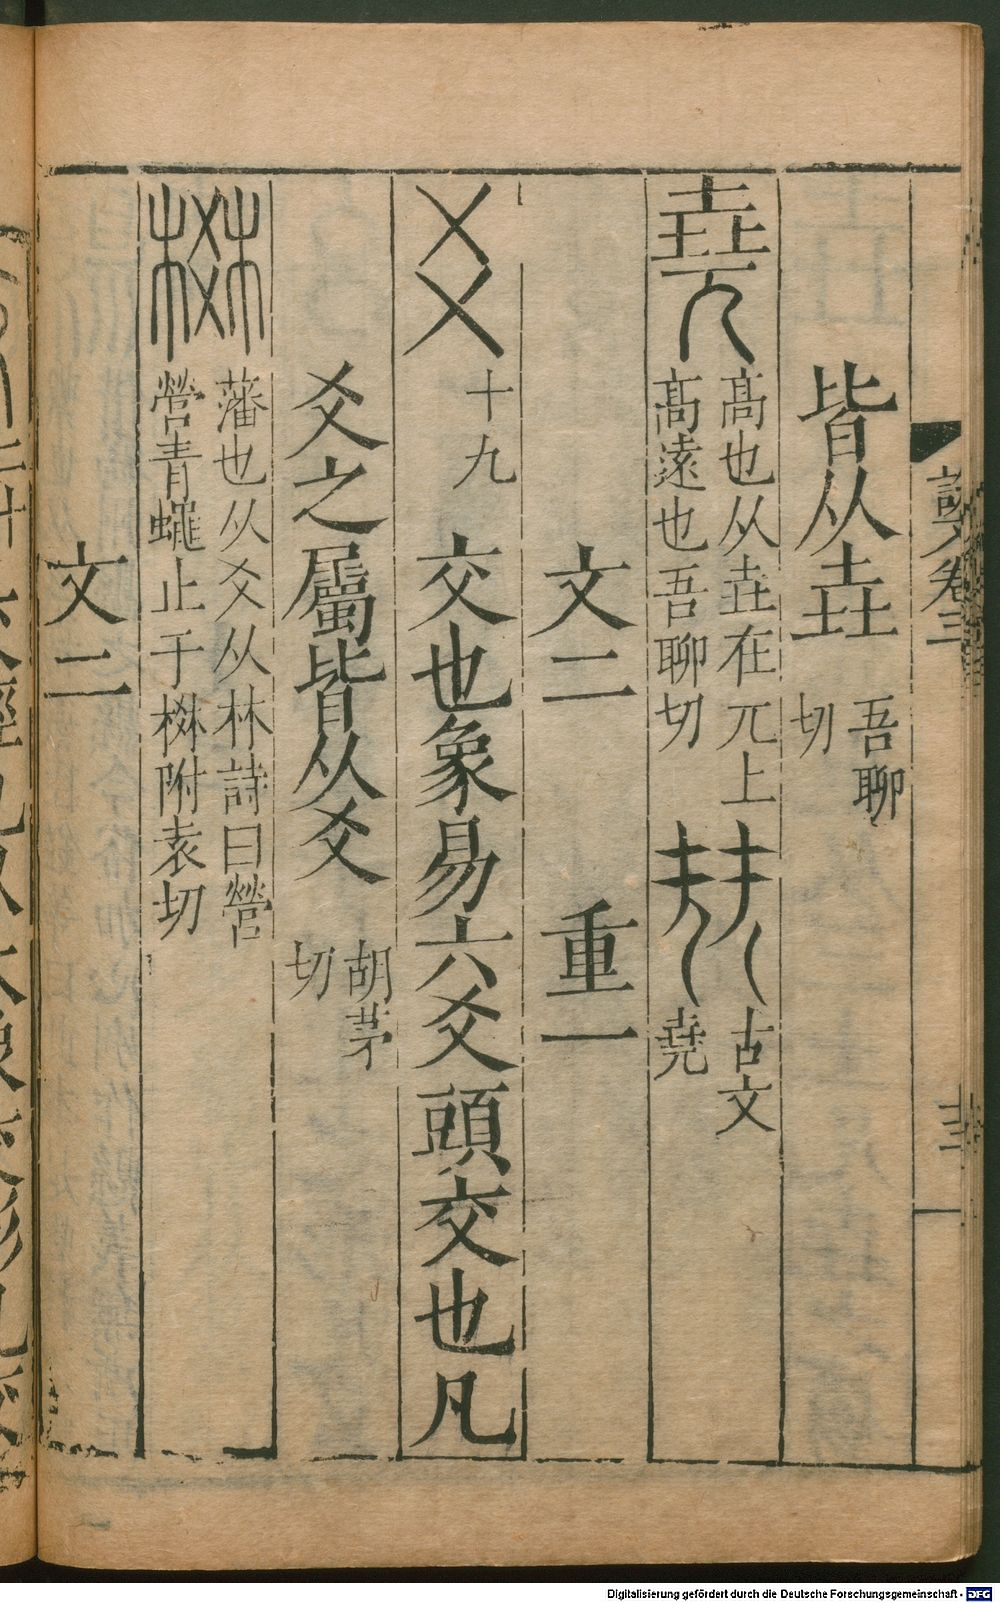 說文卷三
皆从垚吾聊切
堯髙也从垚在兀上髙遠也吾聊切 古文堯
文二 重一
爻十九交也象易六爻頭交也凡
爻之屬皆从爻胡茅切
棥藩也从爻从林詩曰營營青蠅止于棥附袁切
文二
Digitalisierung gefördert durch die Deutsche Forschungsgemeinschaft - DFG